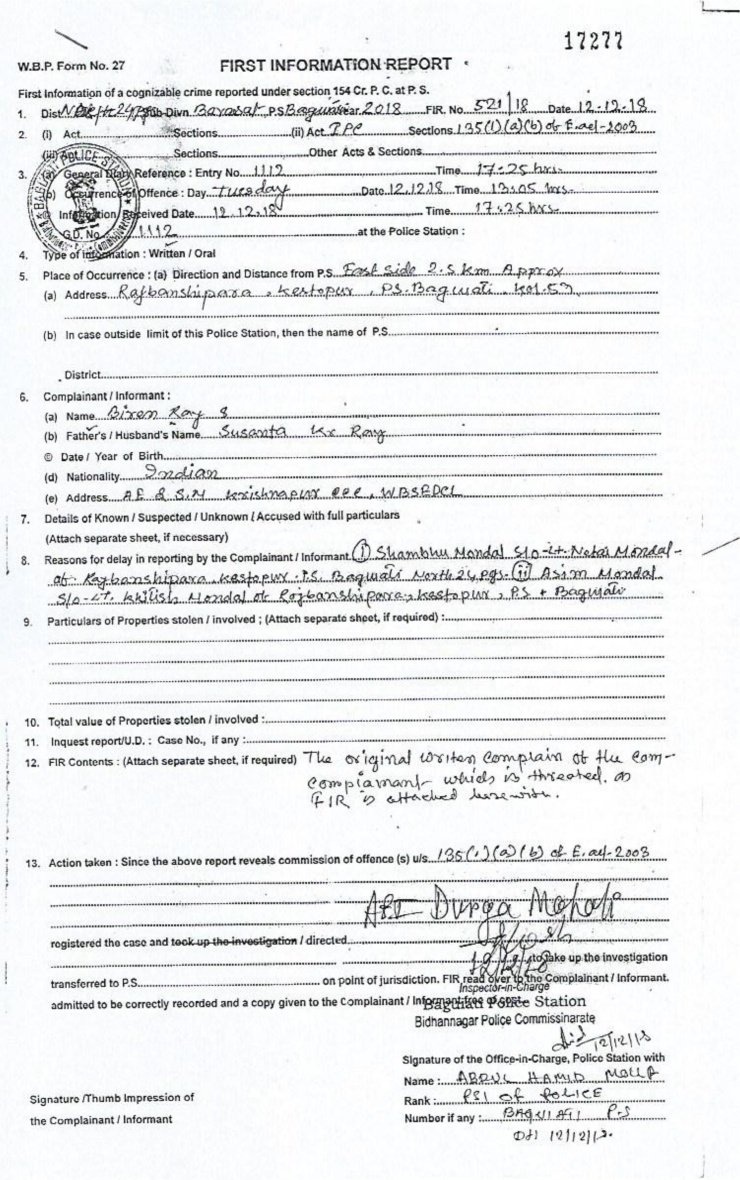 17277
W.B.P. Form No. 27
FIRST INFORMATION REPORT
First Information of a cognizable crime reported under section 154 Cr. P. C. at P. S.
1. Dist. North 24 Pgs Sub-Divn. Barasat P.S. Baguiati Year 2018 FIR. No. 521/18 Date 12.12.18
2. (i) Act Sections (ii) Act IPC Sections 135(1)(a)(b) of E.act-2003
(iii) Sections Other Acts & Sections
3. (a) General Diary Reference : Entry No. 1112 Time 17-25 hrs.
(b) Occurrence of Offence : Day Tuesday Date 12.12.18 Time 13:05 hrs.
© Information Received Date 12.12.18 Time 17:25 hrs.
G.D. No. 1112 at the Police Station :
4. Type of Information : Written / Oral
5. Place of Occurrence : (a) Direction and Distance from P.S. East side 2.5 km Approx
(a) Address Rajbanshipara, Kestopur, PS. Baguiati, Kol.59
(b) In case outside limit of this Police Station, then the name of P.S.
District
6. Complainant / Informant :
(a) Name Biren Ray
(b) Father's / Husband's Name Susanta Kr Ray
© Date / Year of Birth
(d) Nationality Indian
(e) Address AE & S.M Krishnapur CCC, WBSEDCL
7. Details of Known / Suspected / Unknown / Accused with full particulars
(Attach separate sheet, if necessary)
8. Reasons for delay in reporting by the Complainant / Informant (i) Shambhu Mondal S/o-Lt. Netai Mondal-
of- Rajbanshipara Kestopur. P.S. Baguiati North 24 pgs. (ii) Asim Mondal
S/o-Lt. Khitish Mondal of Rajbanshipara, Kestopur, PS Baguiati
9. Particulars of Properties stolen / involved ; (Attach separate sheet, if required) :
10. Total value of Properties stolen / involved :
11. Inquest report/U.D. : Case No., if any :
12. FIR Contents : (Attach separate sheet, if required) The original writen complain of the com-
compiamant- which is threated. as
FIR is attached herewith.
13. Action taken : Since the above report reveals commission of offence (s) u/s. 135(1)(a)(b) of E.act-2003
Durga
registered the case and took up the investigation / directed
12/12/18 to take up the investigation
transferred to P.S. on point of jurisdiction. FIR read over to the Complainant / Informant.
Inspector-in-Charge
admitted to be correctly recorded and a copy given to the Complainant / Informant free of cost.
Baguiati Police Station
Bidhannagar Police Commissinarate
12/12/18
Signature of the Office-in-Charge, Police Station with
Name : ABDUL HAMID MOLLA
Rank : PSI OF POLICE
Number if any : BAGUIATI P.S
12/12/18.
Signature /Thumb Impression of
the Complainant / Informant